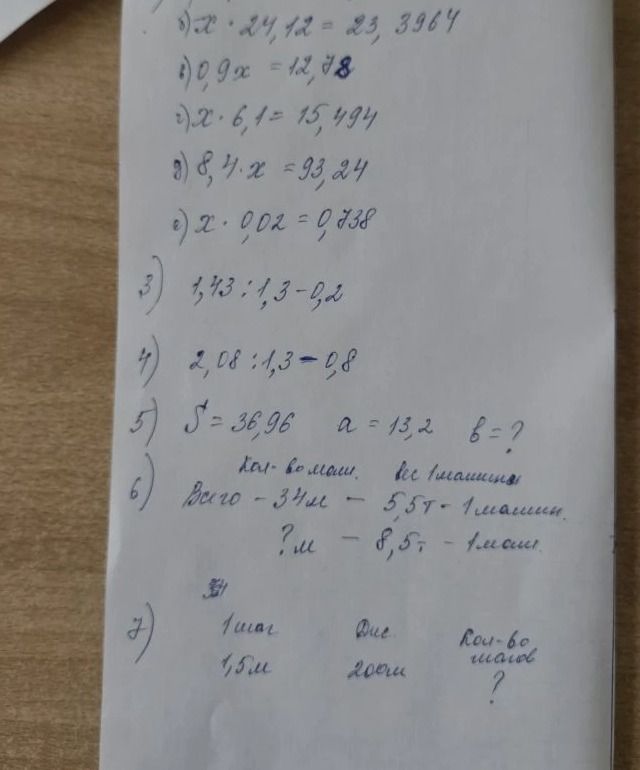 б) x · 24,12 = 23,3964
в) 0,9x = 12,78
г) x · 6,1 = 15,494
д) 8,4 · x = 93,24
е) x · 0,02 = 0,738
3) 1,43 : 1,3 - 0,2
4) 2,08 : 1,3 - 0,8
5) S = 36,96 a = 13,2 в = ?
Кол-во маш. Вес 1 машины
6) Всего - 34м - 5,5т - 1 машин.
?м - 8,5т - 1 маш.
7) 1 шаг Дис. Кол-во шагов
1,5м 200м ?